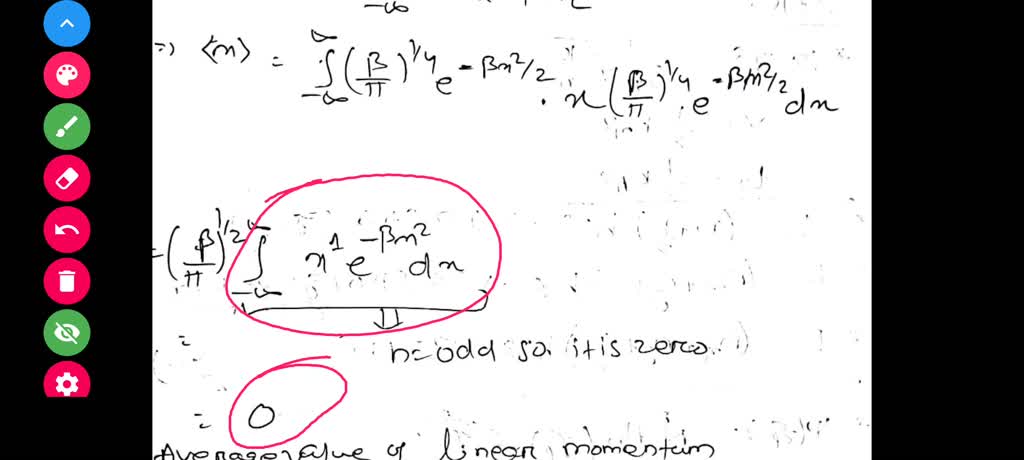 ⇒ ⟨x⟩ = ∫_{-∞}^{∞} (β/π)^{1/4} e^{-βx²/2} . x (β/π)^{1/4} . e^{-βx²/2} dx
= (β/π)^{1/2} ∫_{-∞}^{∞} x^1 e^{-βx²} dx
⇓
=
n=odd so it is zero.
= 0
Average value of linear momentum